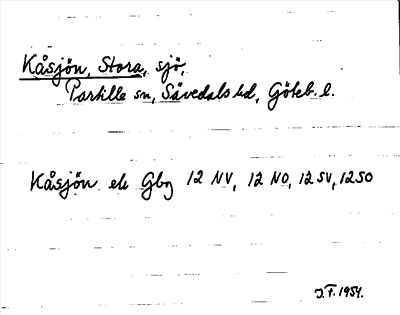 Kåsjön, Stora, sjö,
Partille sn, Sävedals hd, Göteb. l.
Kåsjön ek Gbg 12 NV, 12 NO, 12 SV, 12 SO
J.F. 1954.